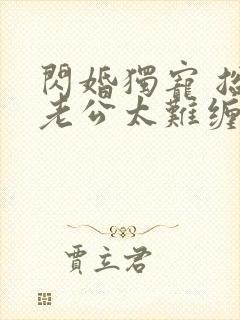 閃婚獨寵
老公太難缠
賈立君